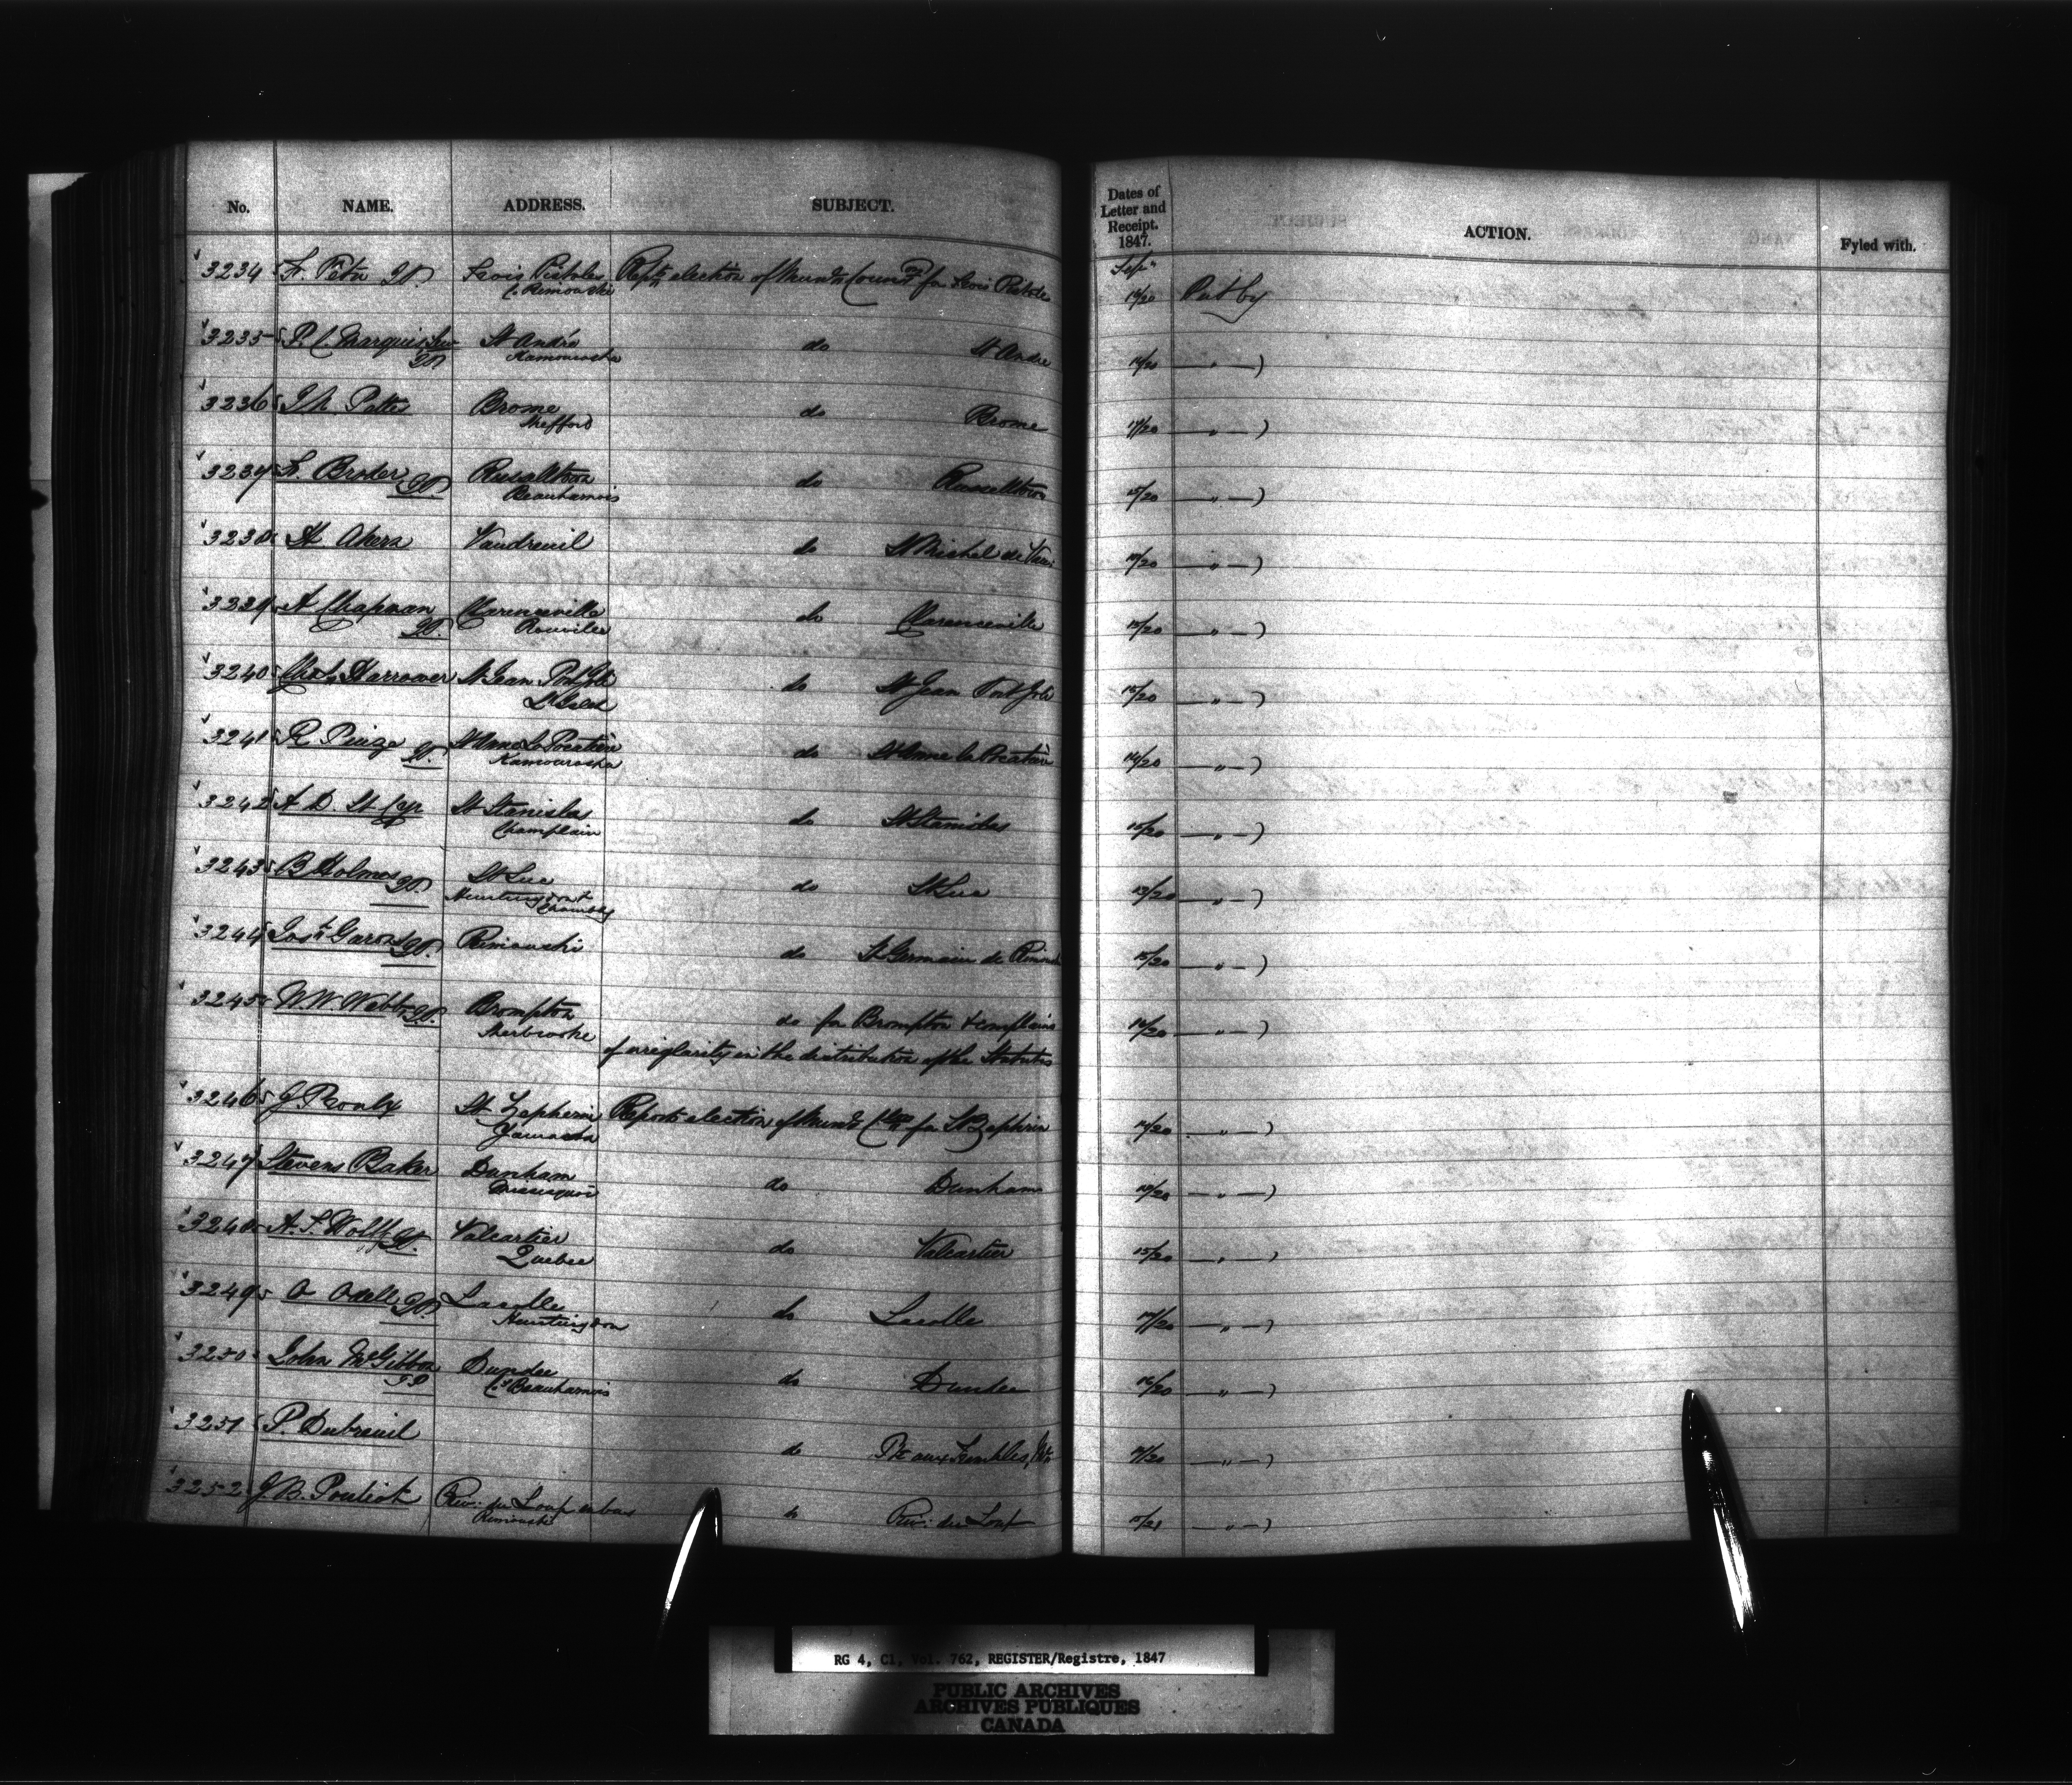 No. NAME. ADDRESS. SUBJECT. Dates of Letter and Receipt. 1847. ACTION. Fyled with.
Sepr
3234 Trois Pistoles Repts election of Munl Councrs for Trois Pistoles /20 Put by
C. Rimouski
3235 P. C. Marquis St André do St Andre 14/20 — " — )
JP Kamouraska
3236 Brome do Brome 17/20 — " — )
Shefford
3237 Broder JP Russeltown do Russeltown 15/20 — " — )
Beauharnois
3238 Akers Vaudreuil do St Michel de Vau /20 — " — )
3239 A Chapman Clarenceville do Clarenceville 15/20 — " — )
JP. Rouville
3240 Chas Harrower St Jean Port Joli do St Jean Port Joli 15/20 — " — )
L'Islet
3241 R Piuze JP. St Anne La Pocatière do St Anne la Pocatière 14/20 — " — )
Kamouraska
3242 A D. St Cyr St Stanislas do St Stanislas /20 — " — )
Champlain
3243 B Holmes JP St Luc do St Luc 13/20 — " — )
Huntingdon
Chambly
3244 Garon JP. Rimouski do St Germain de Rimou 15/20 — " — )
3245 W. W. Webb JP. Brompton do for Brompton & complains 16/20 — " — )
Sherbrooke of irreglarity in the distribution of the Statutes
3246 J Proulx St Zepherin Reports election of Munl Clrs for St Zephirin 14/20 " — )
Yamaska
3247 Stevens Baker Dunham do Dunham /20 — " — )
Missisquoi
3248 A. S. Wolff JP. Valcartier do Valcartier 15/20 — " — )
Quebec
3249 O Odell JP Lacolle do Lacolle 17/20 — " — )
Huntingdon
3250 John McGibbon Dundee do Dundee 16/20 — " — )
JP Cy Beauharnois
3251 P. Dubreuil do Pte aux Trembles, /20 — " — )
3252 J. B. Pouliot Riv: du Loup en bas do Riv: du Loup 15/21 — " — )
Rimouski
RG 4, C1, Vol. 762, REGISTER/Registre, 1847
PUBLIC ARCHIVES
ARCHIVES PUBLIQUES
CANADA